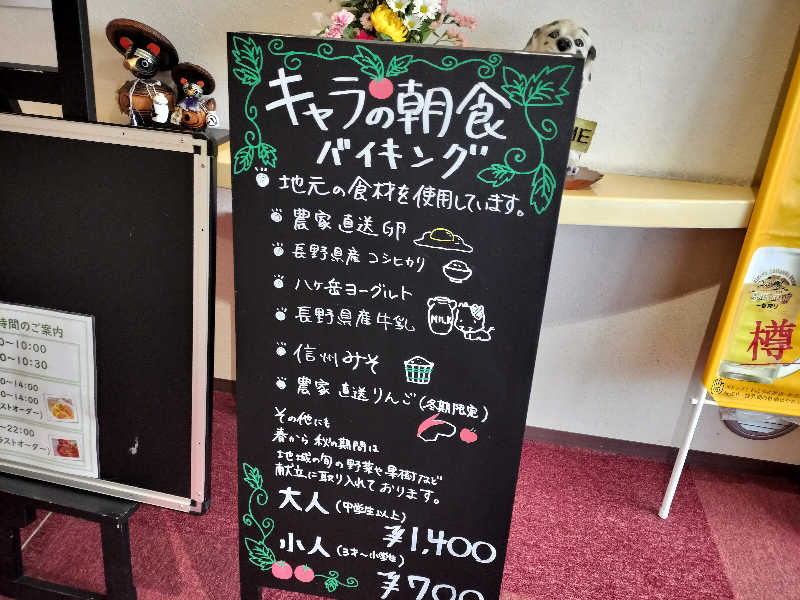 キャラの朝食
バイキング
地元の食材を使用しています。
農家直送卵
長野県産コシヒカリ
八ヶ岳ヨーグルト
長野県産牛乳
MILK
信州みそ
農家直送りんご(冬期限定)
その他にも
春から秋の期間は
地域の旬の野菜や果樹など
献立に取り入れております。
大人(中学生以上)
¥1,400
小人(3才〜小学生)
¥700
時間のご案内
〜10:00
〜10:30
〜14:00
〜14:00
ストオーダー)
〜22:00
ラストオーダー)
一番搾り
樽